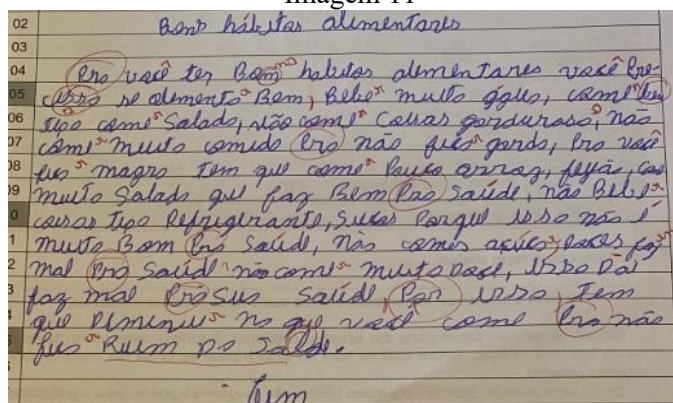 Imagem 11
02 Bons hábitos alimentares
03
04 Pra você ter Bom habitos alimentares você Pre-
05 cisso se alimenta Bem, Bebe muito água, come
06 tipo come Salada, não come Coisas gordurosa, não
07 come muito comida Pra não fica gordo, Pra você
08 fica magro Tem que come Pouco arroz, feijão,
09 muito Salada que faz Bem Pra Saúde, não Bebe
0 coisas tipo Refrigerante, Sucos Porque isso não é
1 muito Bom Pra Saúde, não comer açúcar, doces faz
2 mal Pra Saúde não come muito doce, isso
3 faz mal Pra Sua Saúde, Por isso, Tem
que no que você come Pra não
5 fica Ruim Da
Tem